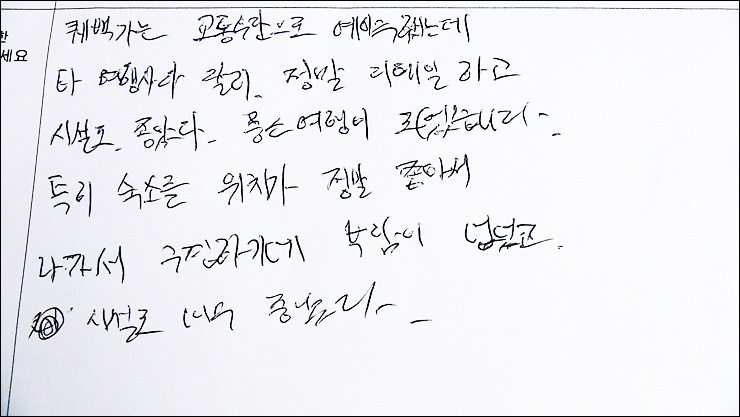 한
세요
퀘백가는 교통수단으로 했는데
타 여행사와 달리 정말 디테일하고
시설도 좋았다. 되었습니다~
특히 숙소를 위치가 정말 좋아서
나가서 구경하기에 부담이 없었고
시설도 매우 좋습니다~